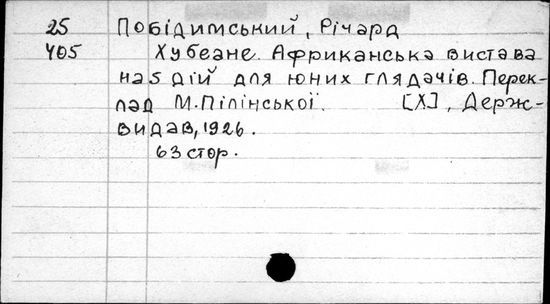 25 Побідимський, Річард
405 Хубеане. Африканська вистава
на 5 дій для юних глядачів. Перек-
лад М. Пілінської. [Х], Держ-
видав, 1926.
63 стор.